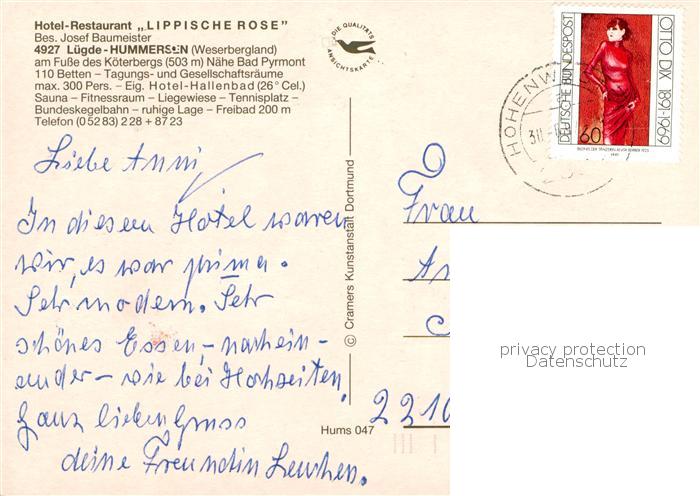 Hotel-Restaurant „LIPPISCHE ROSE"
Bes. Josef Baumeister
4927 Lügde-HUMMERSEN (Weserbergland)
am Fuße des Köterbergs (503 m) Nähe Bad Pyrmont
110 Betten – Tagungs- und Gesellschaftsräume
max. 300 Pers. – Eig. Hotel-Hallenbad (26° Cel.)
Sauna – Fitnessraum – Liegewiese – Tennisplatz –
Bundeskegelbahn – ruhige Lage – Freibad 200 m
Telefon (0 52 83) 2 28 + 87 23
DIE QUALITÄTS
ANSICHTSKARTE
DEUTSCHE BUNDESPOST
60
OTTO DIX 1891-1969
HOHENW
Liebe Anni
In diesem Hotel waren
wir, es war prima.
Sehr modern. Sehr
schönes Essen, – nachein-
ander – wie bei Hochzeiten.
Ganz lieben Gruss
deine Freundin
© Cramers Kunstanstalt Dortmund
Hums 047
Frau
An
2210
privacy protection
Datenschutz